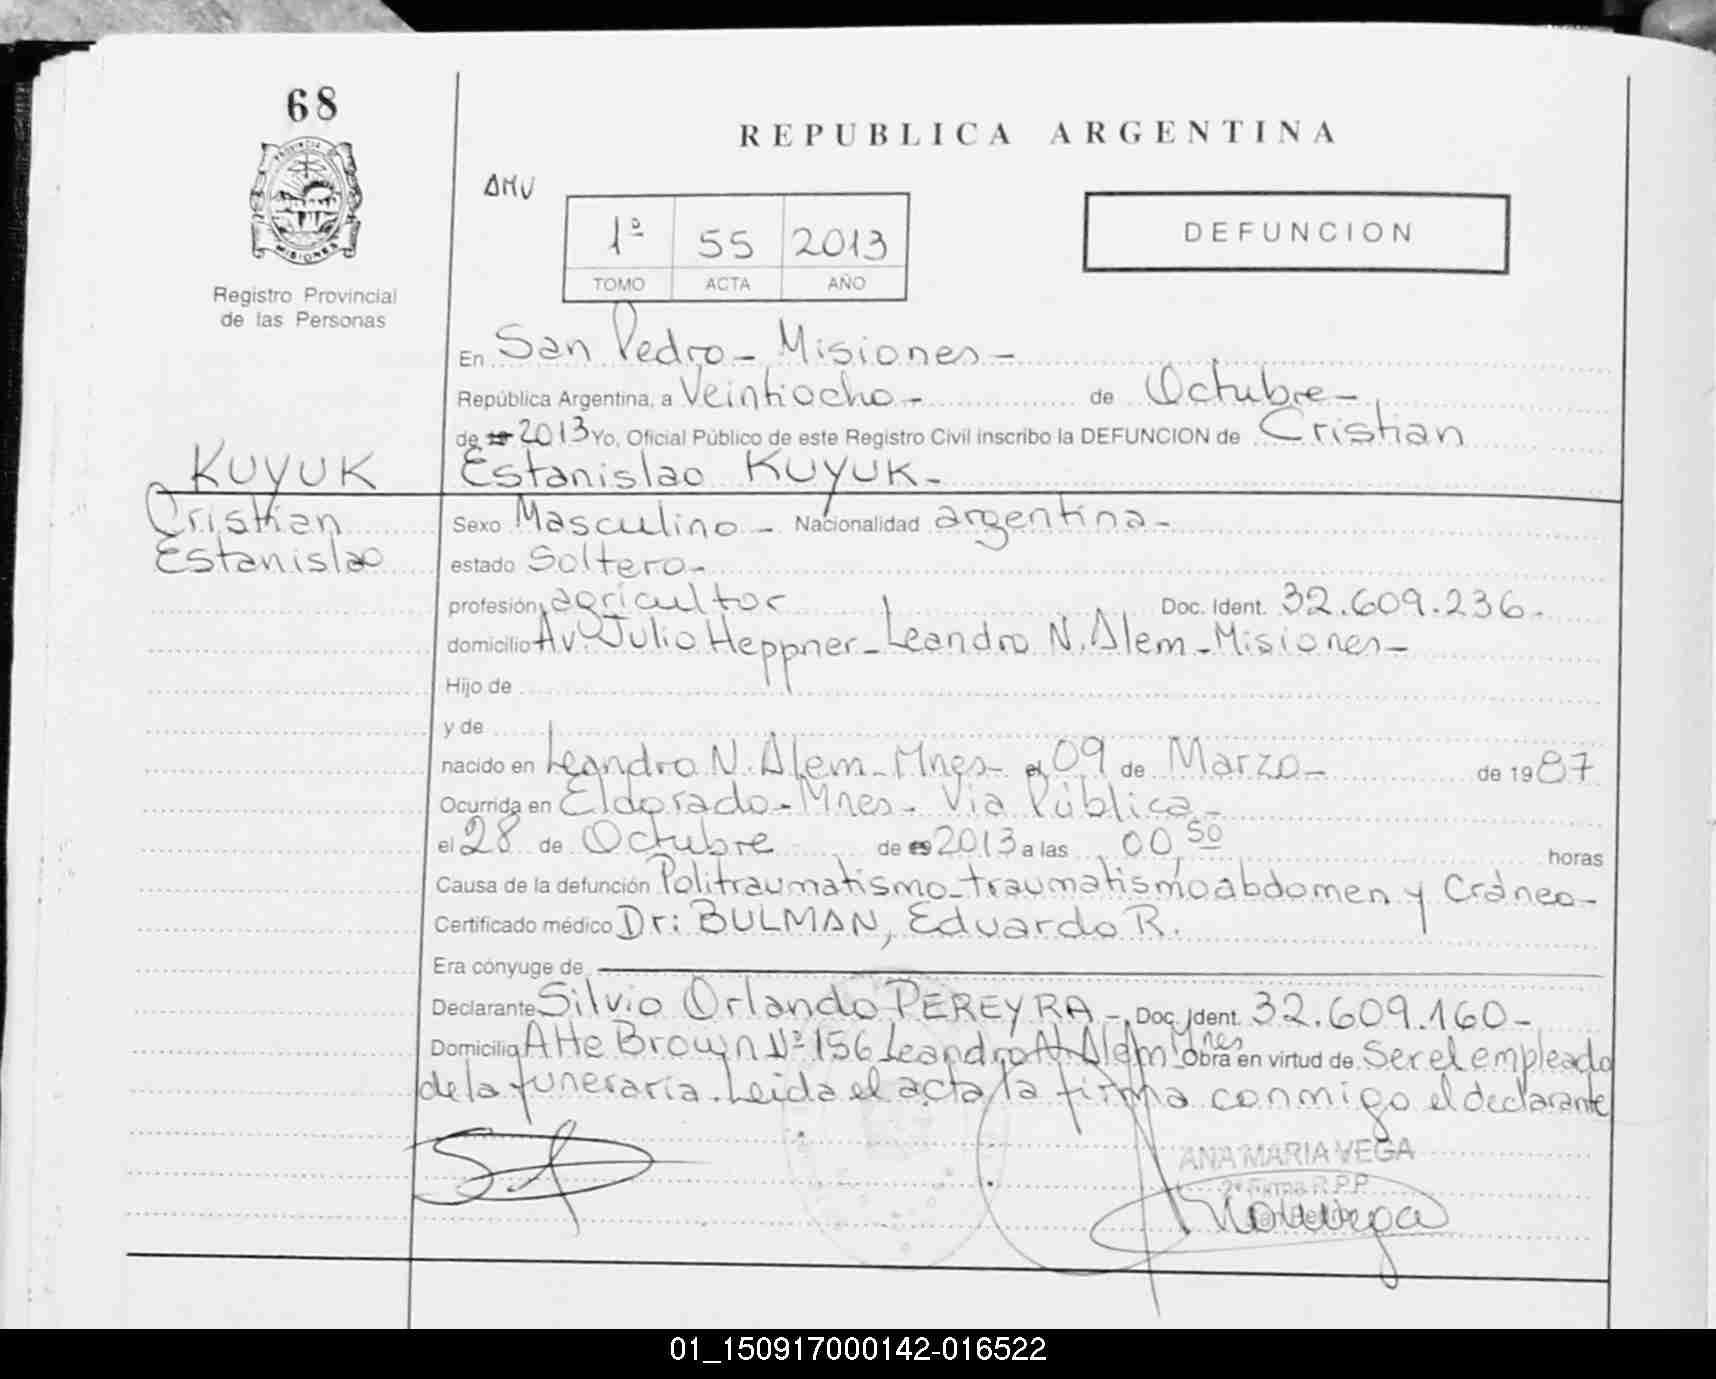 68
REPUBLICA ARGENTINA
PROVINCIA
MISIONES
AMV
1º 55 2013
TOMO ACTA AÑO
DEFUNCION
Registro Provincial
de las Personas
En San Pedro - Misiones -
República Argentina, a Veintiocho - de Octubre -
de 2013 Yo, Oficial Público de este Registro Civil inscribo la DEFUNCION de Cristian
KUYUK
Estanislao KUYUK -
Cristian
Estanislao
Sexo Masculino - Nacionalidad argentina -
estado Soltero -
profesión agricultor Doc. Ident. 32.609.236 -
domicilio Av. Julio Heppner - Leandro N. Alem - Misiones -
Hijo de
y de
nacido en Leandro N. Alem - Mnes - el 09 de Marzo - de 1987
Ocurrida en Eldorado - Mnes - Via Pública -
el 28 de Octubre de 2013 a las 00,50 horas
Causa de la defunción Politraumatismo - traumatismo abdomen y Cráneo -
Certificado médico Dr: BULMAN, Eduardo R.
Era cónyuge de
Declarante Silvio Orlando PEREYRA - Doc. Ident. 32.609.160 -
Domicilio Alte Brown Nº 156 Leandro N. Alem Mnes Obra en virtud de Ser el empleado
de la funeraria. Leida el acta la firma conmigo el declarante
ANA MARIA VEGA
2ª Firma R.P.P.
01_150917000142-016522